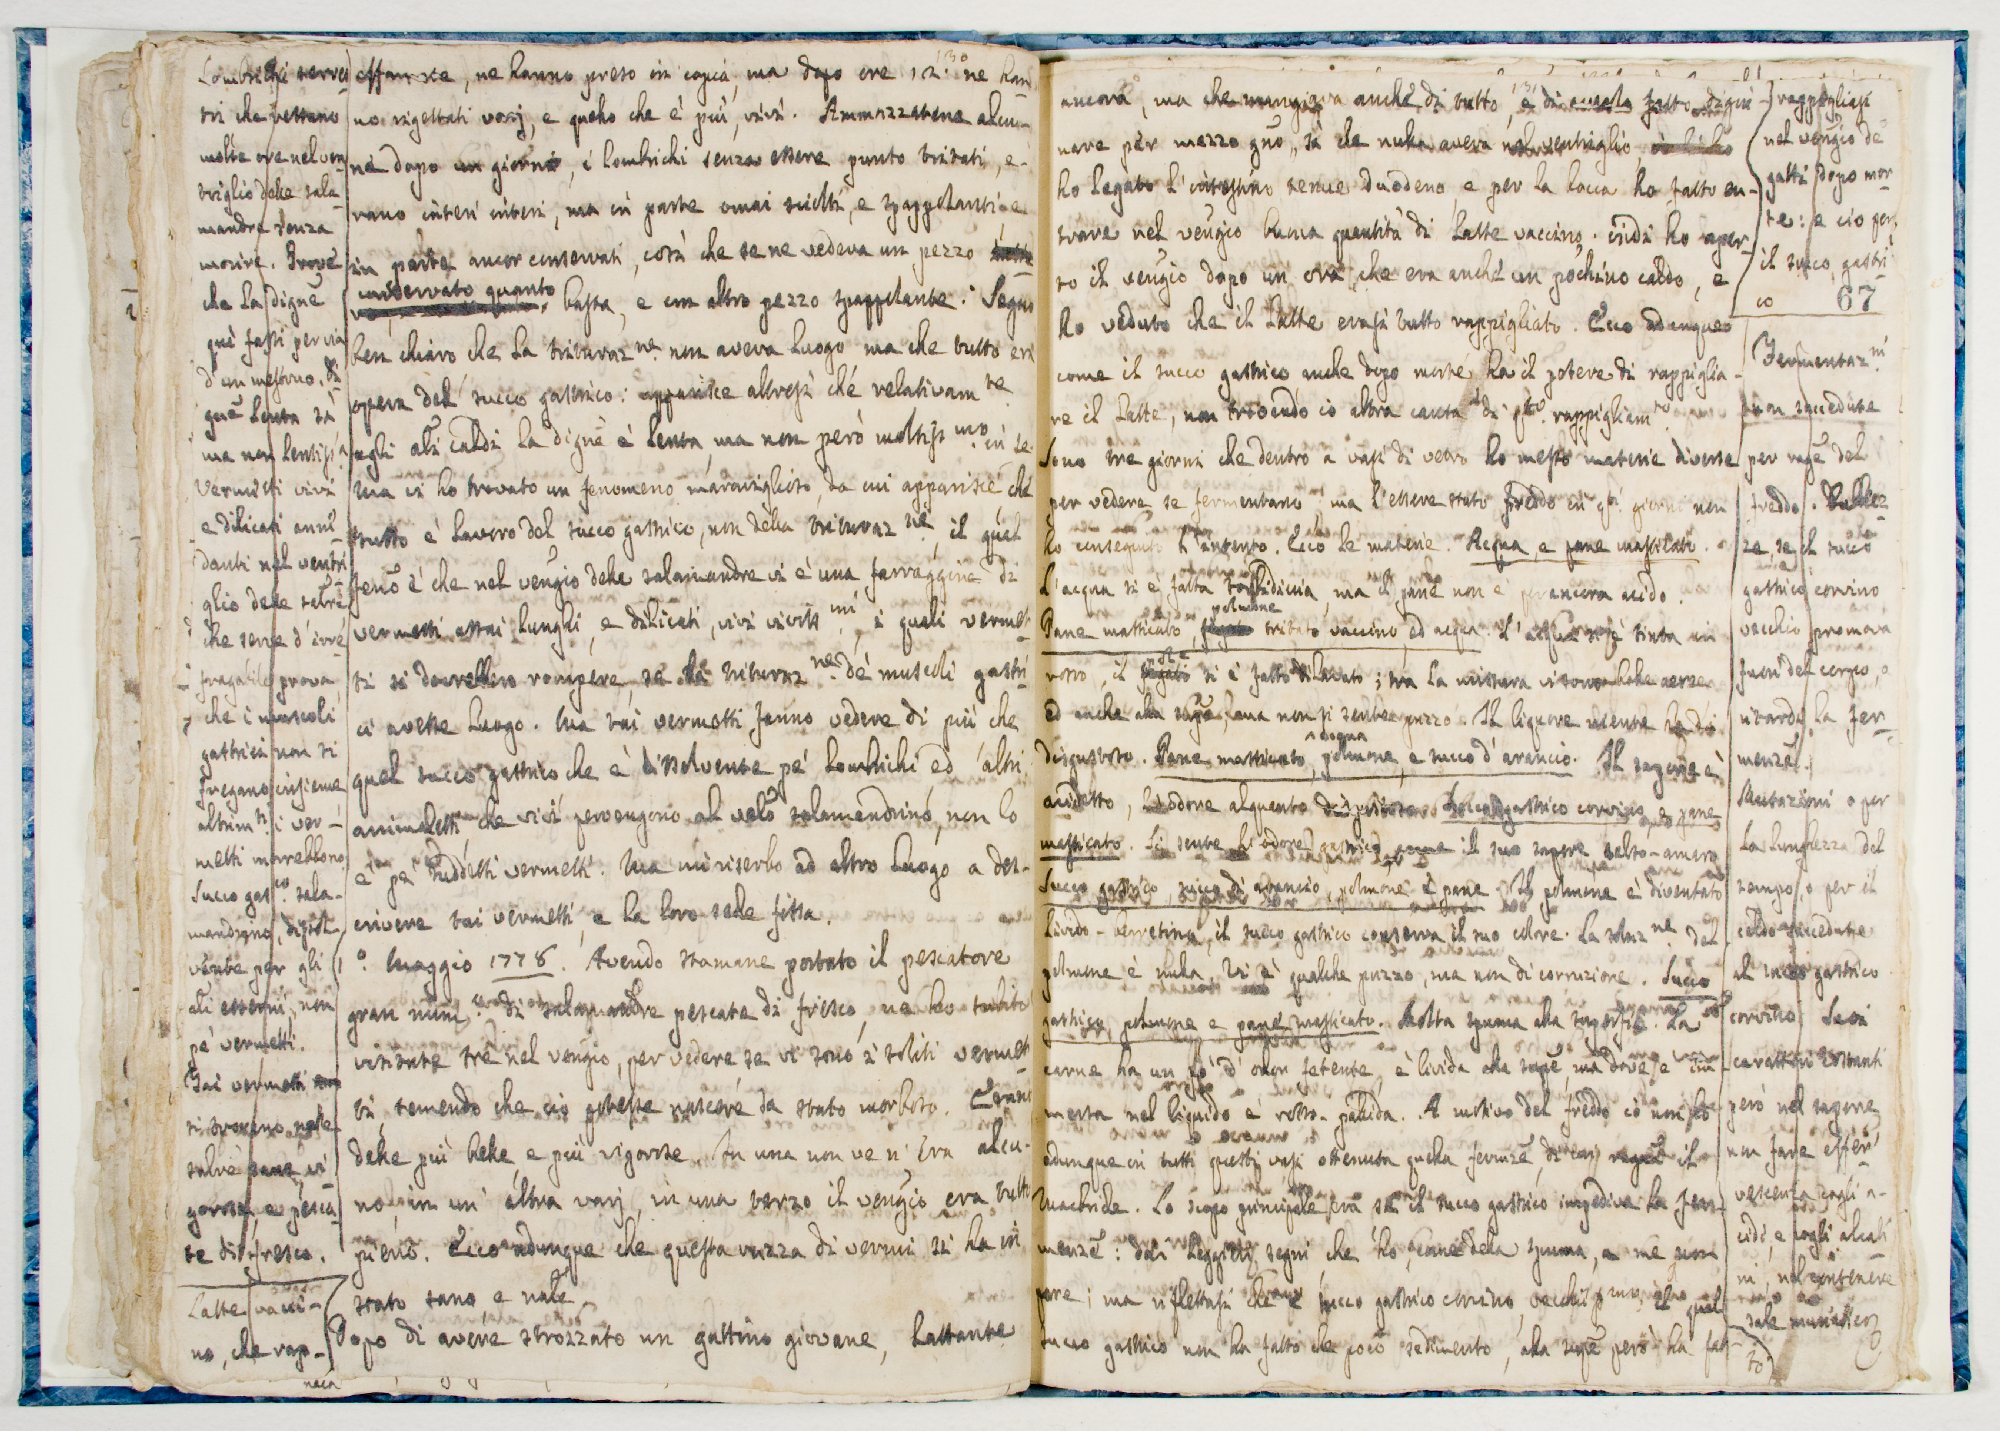 130
Lombrichi terres
tri che restano
molte ore nel ven
triglio delle sala
mandre senza
morire. Prove
che la digne
què fassi per via
d'un mestruo. Di
gne lenta sà
ma non lentiss.ª
Vermetti vivi
e dilicati anni
danti nel ventri
glio delle
che serve d'
fragabile prova
che i muscoli
gastrici non si
fregano insieme
altrim.ti i ver-
metti morrebbono
Succo gas.co sala-
mandrino, dissol-
vente per gli
ali esterni, non
pe' vermetti.
Tai vermetti
si trovano nelle
salve sane vi
gorose, e pesca
te di fresco.
Latte vacci-
no, che rap-
, ne hanno preso in copia, ma dopo ore 12. ne han
no rigettati varj, e quello che è più, vivi. Ammazzatene alcu-
ne dopo un giorno, i lombrichi senza essere punto tritati, e-
rano interi interi, ma in parte omai sciolti, e spappolanti e
in parte ancor conservati, così che se ne vedeva un pezzo
conservato quanto
basta, e un altro pezzo spappolante. Segno
ben chiaro che la trituraz.ne non aveva luogo ma che tutto era
opera del succo gastrico: apparisce altresì che relativam.te
agli ali caldi la digne è lenta, ma non però moltiss.mo in se.
Ma vi ho trovato un fenomeno maraviglioso, da cui apparisce, che
tutto è lavoro del succo gastrico, non della trituraz.ne, il qual
feno è che nel vengio delle salamandre vi è una farraggine di
vermetti assai lunghi, e dilicati, vivi viviss.mi, i quali vermet
ti si dovrebbero rompere, se la trituraz.ne de' muscoli gastri
ci avesse luogo. Ma tai vermetti fanno vedere di più che
quel succo gastrico che è dissolvente pe' lombrichi ed altri
animaletti che vivi pervengono al velo salamandrino, non lo
è pe' suddetti vermetti. Ma mi riserbo ad altro luogo a des-
crivere tai vermetti, e la loro sede fissa.
1º. Maggio 1778. Avendo stamane portato il pescatore
gran num.º di salamandre pescate di fresco, ne ho subito
visitate tre nel vengio, per vedere se vi sono i soliti vermet
ti, temendo che ciò potesse nascere da stato morboso. Erano
delle più belle, e più vigorose. In una non ve n'era alcu-
no, in un'altra varj, in una terza il vengio era tutto
pieno. Ecco adunque che questa razza di vermi si ha in
stato sano, e nale.
Dopo di avere strozzato un gattino giovane, lattante
131
ancora, ma che mangiava anche di tutto, e di fatto digiu
nare per mezzo gno, sà che nulla aveva nel ventriglio,
ho legato l'intestino tenue duodeno, e per la bocca ho fatto en-
trare nel vengio buona quantità di latte vaccino. indi ho aper-
to il vengio dopo un ora, che era anche un pochino caldo, e
ho veduto che il latte erasi tutto rappigliato. Ecco adunque
come il succo gastrico anche dopo morte ha il potere di rappiglia-
re il latte, non trovando io altra causa di q.to rappigliam.to
Sono tre giorni che dentro a vasi di vetro ho messo materie diverse
per vedere se fermentano, ma l'essere stato freddo in q.ti giorni non
ho conseguito l'intento. Ecco le materie. Acqua, e pane masticato.
L'acqua si è fatta torbidiccia, ma il pane non è per ancora acido.
polmone
Pane masticato, tritato vaccino, ed acqua. L'acqua si è tinta in
rosso, il si è fatto dilavato; tra la mistura vi sono bolle aeree
ed anche alla supe, ma non si sente puzzo. Il liquore niente ha di
disgustoso. Pane masticato, acqua polmone, e succo d'arancio. Il sapore è
acidetto, l'odore alquanto disgustoso. Succo gastrico corvino, e pane
masticato. Si sente l'odore gastrico come il suo sapore salso-amaro
Succo gastrico, succo di arancio, polmone e pane. Il polmone è diventato
livido-verretino, il succo gastrico conserva il suo colore. La soluz.ne del
polmone è nulla. Vi è qualche puzzo, ma non di corruzione. Succo
gastrico, polmone e pane masticato. Molta spuma alla superfi.e La
carne ha un pò d'odor fetente, è livida alla supe, ma dove è im-
mersa nel liquido è rosso-pallida. A motivo del freddo ciò non ho
adunque in tutti questi vasi ottenuta quella fermze, di cui il
Macbride. Lo scopo principale era se il succo gastrico impediva la fer-
menze: dai leggieri segni che ho, come della spuma, a me non
pare; ma riflettasi che è succo gastrico corvino, vecchi.mo, il qual
succo gastrico non ha fatto che poco sedimento, alla supe però ha fat-
to
rappigliasi
nel vengio de
gatti dopo mor-
te: e ciò per
il succo gastri
co
67
Fermentaz.ni
non succedute
per rage del
freddo.
ze, se il succo
gastrico corvino
vecchio promova
fuori del corpo, o
ritardi la fer-
menze.
Mutazioni o per
la lunghezza del
tempo, o per il
caldo succedute
al succo gastrico
corvino. Suoi
caratteri costanti
però nel sapore
non fare effer-
vescenza cogli a-
cidi, e cogli alcali
ni, nel contenere
sale muriatico